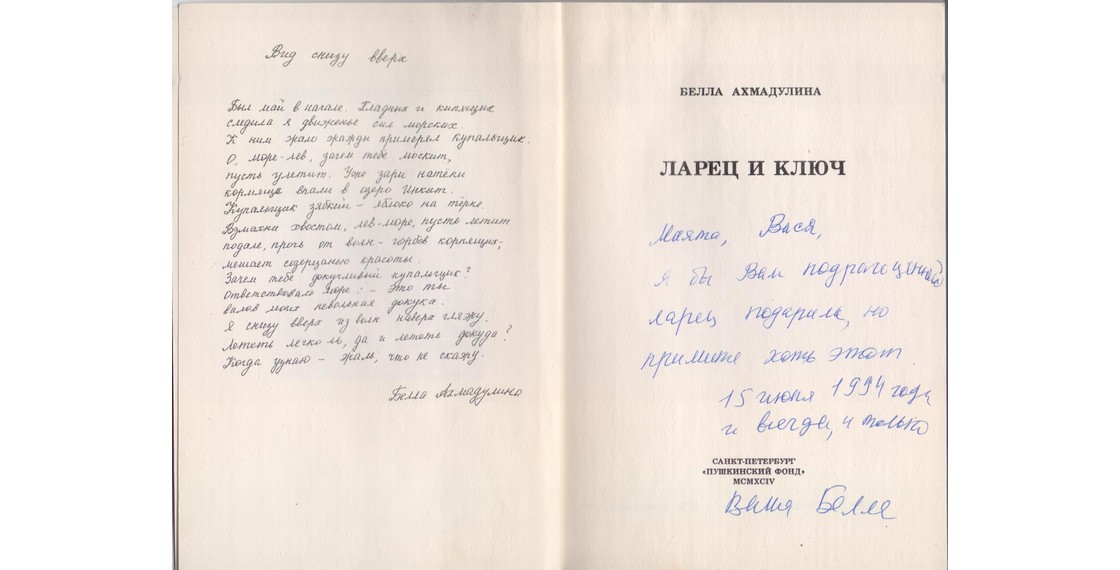 Вид снизу вверх
Был май в начале. Гладных и кипящих
следила я движенье сил морских.
К ним жало жажды примерял купальщик.
О, море-лев, зачем тебе москит,
пусть улетит. Уже зари натёки
кормяще впали в озеро Инкит.
Купальщик зябкий – яблоко на тёрке.
Взмахни хвостом, лев-море, пусть летит
подале, прочь от волн – горбов корпящих,
мешает созерцанью красоты.
Зачем тебе докучливый купальщик?
Ответствовало море: – Это ты
валов моих невольная докука.
Я снизу вверх из волн наверх гляжу.
Лететь легко ль, да и лететь докуда?
Когда узнаю – жаль, что не скажу.
Белла Ахмадулина
БЕЛЛА АХМАДУЛИНА
ЛАРЕЦ И КЛЮЧ
Вася,
я бы Вам подрагоценней
ларец подарила, но
примите хоть этот.
15 июня 1994 года
и всегда, и только
САНКТ-ПЕТЕРБУРГ
«ПУШКИНСКИЙ ФОНД»
MCMXCIV
Ваша Белла